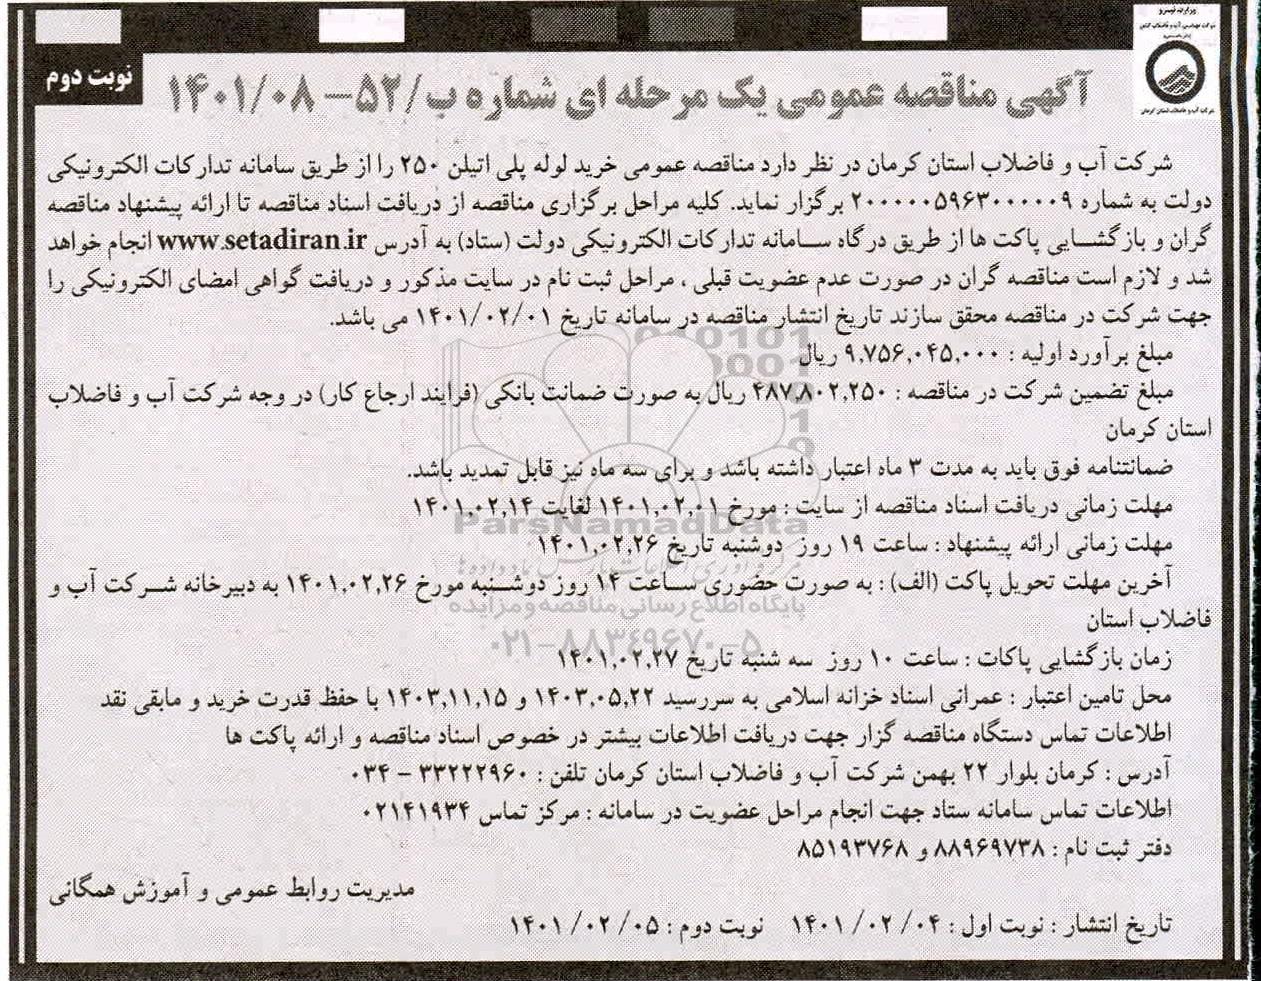 وزارت نیرو
شرکت مهندسی آب و فاضلاب کشور
شرکت آب و فاضلاب استان کرمان
نوبت دوم
آگهی مناقصه عمومی یک مرحله ای شماره ب/۵۲– ۱۴۰۱/۰۸
شرکت آب و فاضلاب استان کرمان در نظر دارد مناقصه عمومی خرید لوله پلی اتیلن ۲۵۰ را از طریق سامانه تدارکات الکترونیکی
دولت به شماره ۲۰۰۰۰۰۵۹۶۳۰۰۰۰۰۹ برگزار نماید. کلیه مراحل برگزاری مناقصه از دریافت اسناد مناقصه تا ارائه پیشنهاد مناقصه
گران و بازگشایی پاکت ها از طریق درگاه سامانه تدارکات الکترونیکی دولت (ستاد) به آدرس www.setadiran.ir انجام خواهد
شد و لازم است مناقصه گران در صورت عدم عضویت قبلی ، مراحل ثبت نام در سایت مذکور و دریافت گواهی امضای الکترونیکی را
جهت شرکت در مناقصه محقق سازند تاریخ انتشار مناقصه در سامانه تاریخ ۱۴۰۱/۰۲/۰۱ می باشد.
مبلغ برآورد اولیه : ۹,۷۵۶,۰۴۵,۰۰۰ ریال
مبلغ تضمین شرکت در مناقصه : ۴۸۷,۸۰۲,۲۵۰ ریال به صورت ضمانت بانکی (فرایند ارجاع کار) در وجه شرکت آب و فاضلاب
استان کرمان
ضمانتنامه فوق باید به مدت ۳ ماه اعتبار داشته باشد و برای سه ماه نیز قابل تمدید باشد.
مهلت زمانی دریافت اسناد مناقصه از سایت : مورخ ۱۴۰۱,۰۲,۰۱ لغایت ۱۴۰۱,۰۲,۱۴
ParsNamadData
مهلت زمانی ارائه پیشنهاد : ساعت ۱۹ روز دوشنبه تاریخ ۱۴۰۱,۰۲,۲۶
آخرین مهلت تحویل پاکت (الف) : به صورت حضوری ساعت ۱۴ روز دوشنبه مورخ ۱۴۰۱,۰۲,۲۶ به دبیرخانه شرکت آب و
پایگاه اطلاع رسانی مناقصه و مزایده
فاضلاب استان
۰۲۱-۸۸۳۴۹۶۷۰-۵
زمان بازگشایی پاکات : ساعت ۱۰ روز سه شنبه تاریخ ۱۴۰۱,۰۲,۲۷
محل تامین اعتبار : عمرانی اسناد خزانه اسلامی به سررسید ۱۴۰۳,۰۵,۲۲ و ۱۴۰۳,۱۱,۱۵ با حفظ قدرت خرید و مابقی نقد
اطلاعات تماس دستگاه مناقصه گزار جهت دریافت اطلاعات بیشتر در خصوص اسناد مناقصه و ارائه پاکت ها
آدرس : کرمان بلوار ۲۲ بهمن شرکت آب و فاضلاب استان کرمان تلفن : ۳۳۲۲۲۹۶۰ – ۰۳۴
اطلاعات تماس سامانه ستاد جهت انجام مراحل عضویت در سامانه : مرکز تماس ۰۲۱۴۱۹۳۴
دفتر ثبت نام : ۸۸۹۶۹۷۳۸ و ۸۵۱۹۳۷۶۸
مدیریت روابط عمومی و آموزش همگانی
تاریخ انتشار : نوبت اول : ۰۴/ ۰۲/ ۱۴۰۱ نوبت دوم : ۰۵/ ۰۲/ ۱۴۰۱